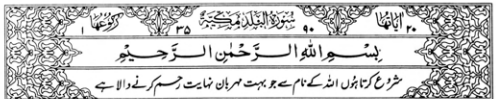 اٰیَاتُهَا ۲۰ ۹۰ سُوْرَةُ الْبَلَدِ مَكِّیَّةٌ ۳۵ رُكُوْعُهَا ۱
بِسْمِ اللهِ الرَّحْمٰنِ الرَّحِیْمِ
شروع کرتا ہوں اللہ کے نام سے جو بہت مہربان نہایت رحم کرنے والا ہے